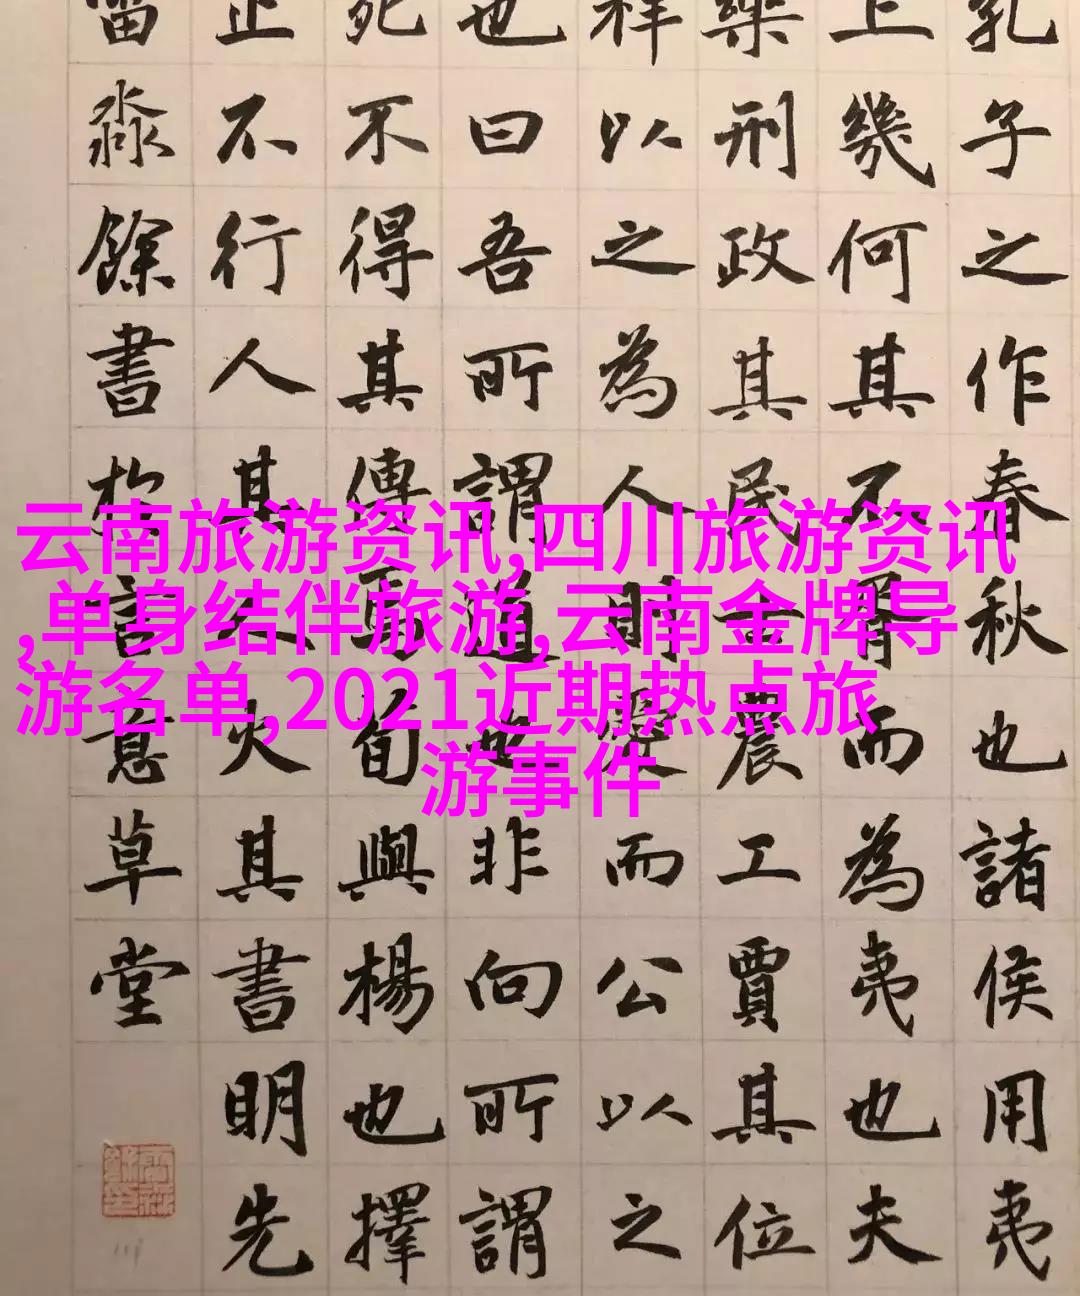 云南旅游资讯,四川旅游资讯
,单身结伴旅游,云南金牌导
游名单,2021近期热点旅
游事件
孔子之作春秋也諸侯用夷
上幾何其不胥而為夷也夫
樂刑政其民士農工賈其位
祥以之為人則愛而公以之
也曰吾所謂道也非向所謂
死不得其傳焉荀與楊也擇
止不行人其人火其書明先
淼餘書於言意草堂